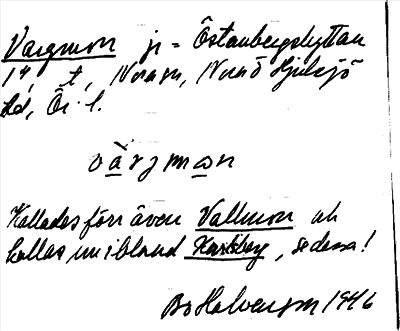 Vargmon js = Östanbergshyttan
14, t, Noram, Nora o Hjulsjö
hd, Ör. l.
vàrgmon
Kallades förr även Vallmon och
kallas nu ibland Karlsberg, se dessa!
Bo Halvarson 1946